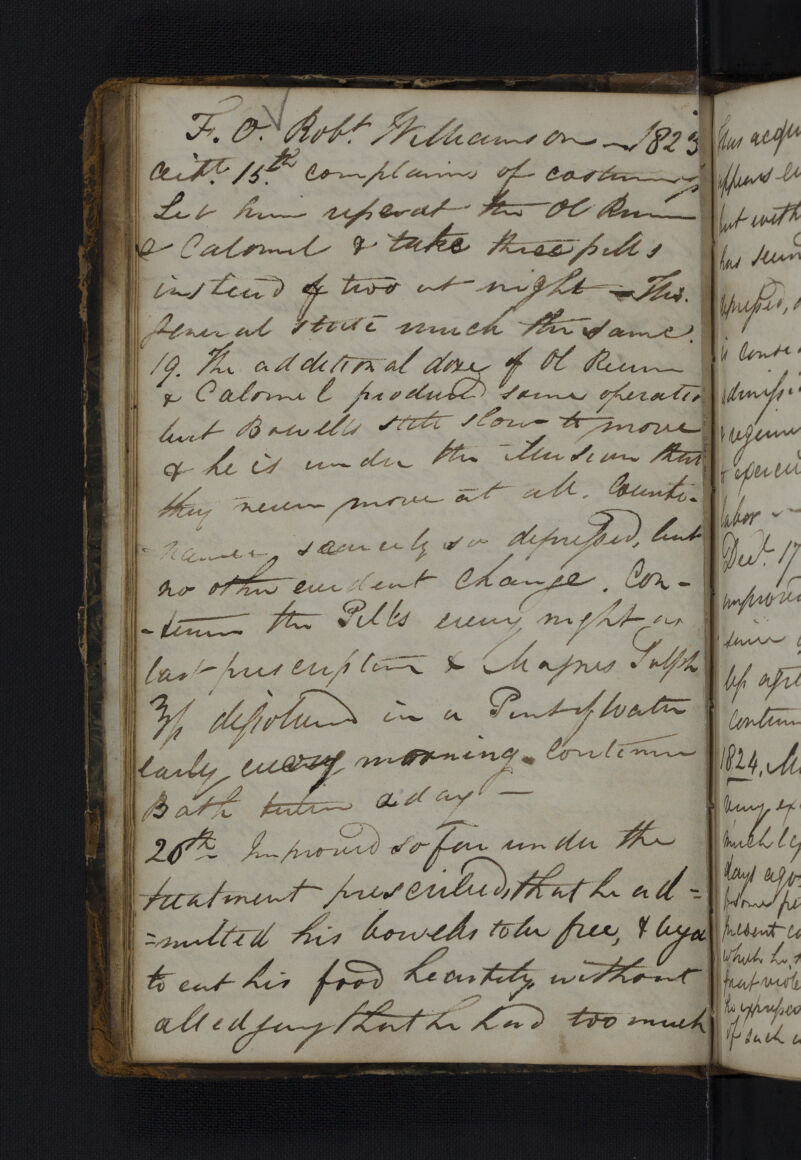 F. O. Robt. Williamson – 1823
Octr. 15th complains of costiveness
Let him repeat the Ol Ricin
& Calomel & take three pills
instead of two at night – The
general state much the same.
19. The additional dose of Ol Ricin
& Calomel produced some operation
but Bowells still slow to move
& he is under the illusion that
they never move at all. Counte-
nance scarcely so depressed, but
no other evident change. Con-
-tinue the Pills every night as
last prescription & Magnes Sulph
dissolved in a Pint of Water
early every morning. Continue
Bath twice a day –
28th Improved so far under the
treatment prescribed, that he ad=
=mitted his bowels to be free, & began
to eat his food heartily without
alledging that he had too much
has acqu
appears
but with
has seem
depressed,

regimen
exercis
labor
Decr. 17
improved

continu
1824.
very ex
much
days ago

present
which he
that viole
he expressed
of such